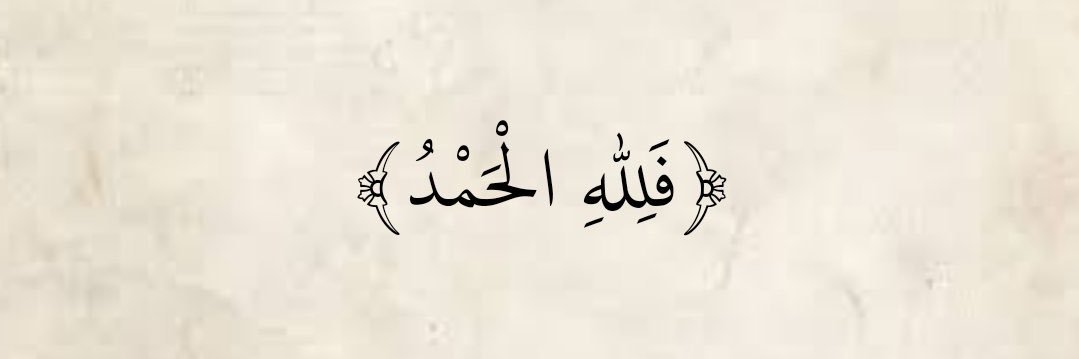 ﴿فَلِلّٰهِ الْحَمْدُ﴾